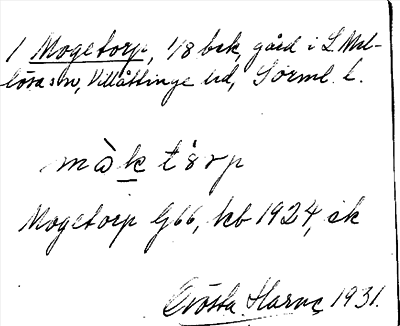 1 Mogetorp, 1/8 bsk, gård i L. Mel-
lösa sn, Villåttinge hd, Sörml. l.
màk tårp
Mogetorp G66, kb 1924, ek
Gösta Harne 1931.